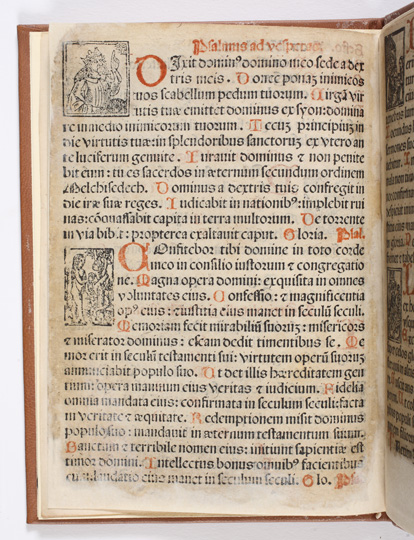 Psalmus ad vesperas.
DIxit domin⁹ domino meo sede a dex
tris meis. Donec ponaz inimicos
tuos scabellum pedum tuorum. Uirgā vir
tutis tuæ emittet dominus ex syon: domina
re in medio inimicorum tuorum. Tecuz principiuz in
die virtutis tuæ: in splendoribus sanctoruz ex vtero an
te luciferum genui te. Iurauit dominus ⁊ non penite
bit eum: tu es sacerdos in æternum secundum ordinem
Melchisedech. Dominus a dextris tuis confregit in
die iræ suæ reges. Iudicabit in nationib⁹: implebit rui
nas: cōquassabit capita in terra multorum. De torrente
in via bibet: propterea exaltauit caput. Gloria. Psal.
COnfitebor tibi domine in toto corde
meo in consilio iustorum ⁊ congregatio
ne. Magna opera domini: exquisita in omnes
voluntates eius. Confessio: ⁊ magnificentia
op⁹ eius: ⁊ iustitia eius manet in seculū seculi.
Memoriam fecit mirabiliū suoruz: misericors
⁊ miserator dominus: escam dedit timentibus se. Me
mor erit in seculū testamenti sui: virtutem operū suoruz
annunciabit populo suo. Ut det illis hæreditatem gen
tium: opera manuum eius veritas ⁊ iudicium. Fidelia
omnia mandata eius: confirmata in seculum seculi: facta
in veritate ⁊ æquitate. Redemptionem misit dominus
populo suo: mandauit in æternum testamentum suum.
Sanctum ⁊ terribile nomen eius: initium sapientiæ est
timor domini. Intellectus bonus omnib⁹ facientibus
eum: laudatio eius manet in seculum seculi. Glo. Psal.